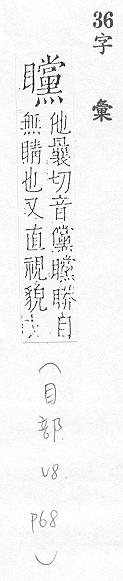 36字彙
矘
他曩切音儻矘䁶自
無睛也又直視貌
（目部 V8. P68）